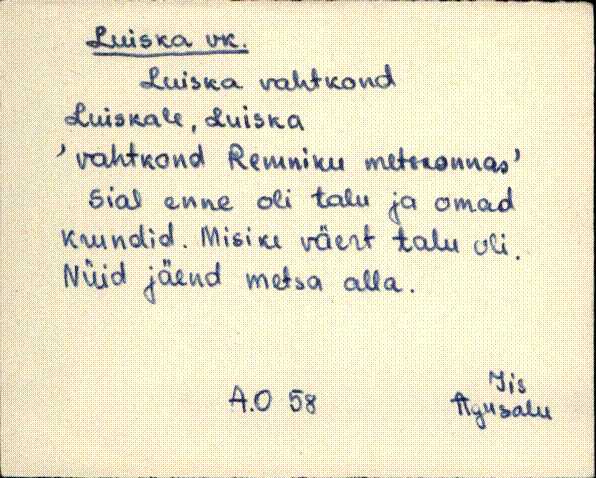 Luiska vk.
Luiska vahtkond
Luiskale, Luiska
'vahtkond Remniku metskonnas'
Sial enne oli talu ja omad
krundid. Misike väert talu oli.
Nüid jäend metsa alla.
Jis
A.O 58 Agusalu